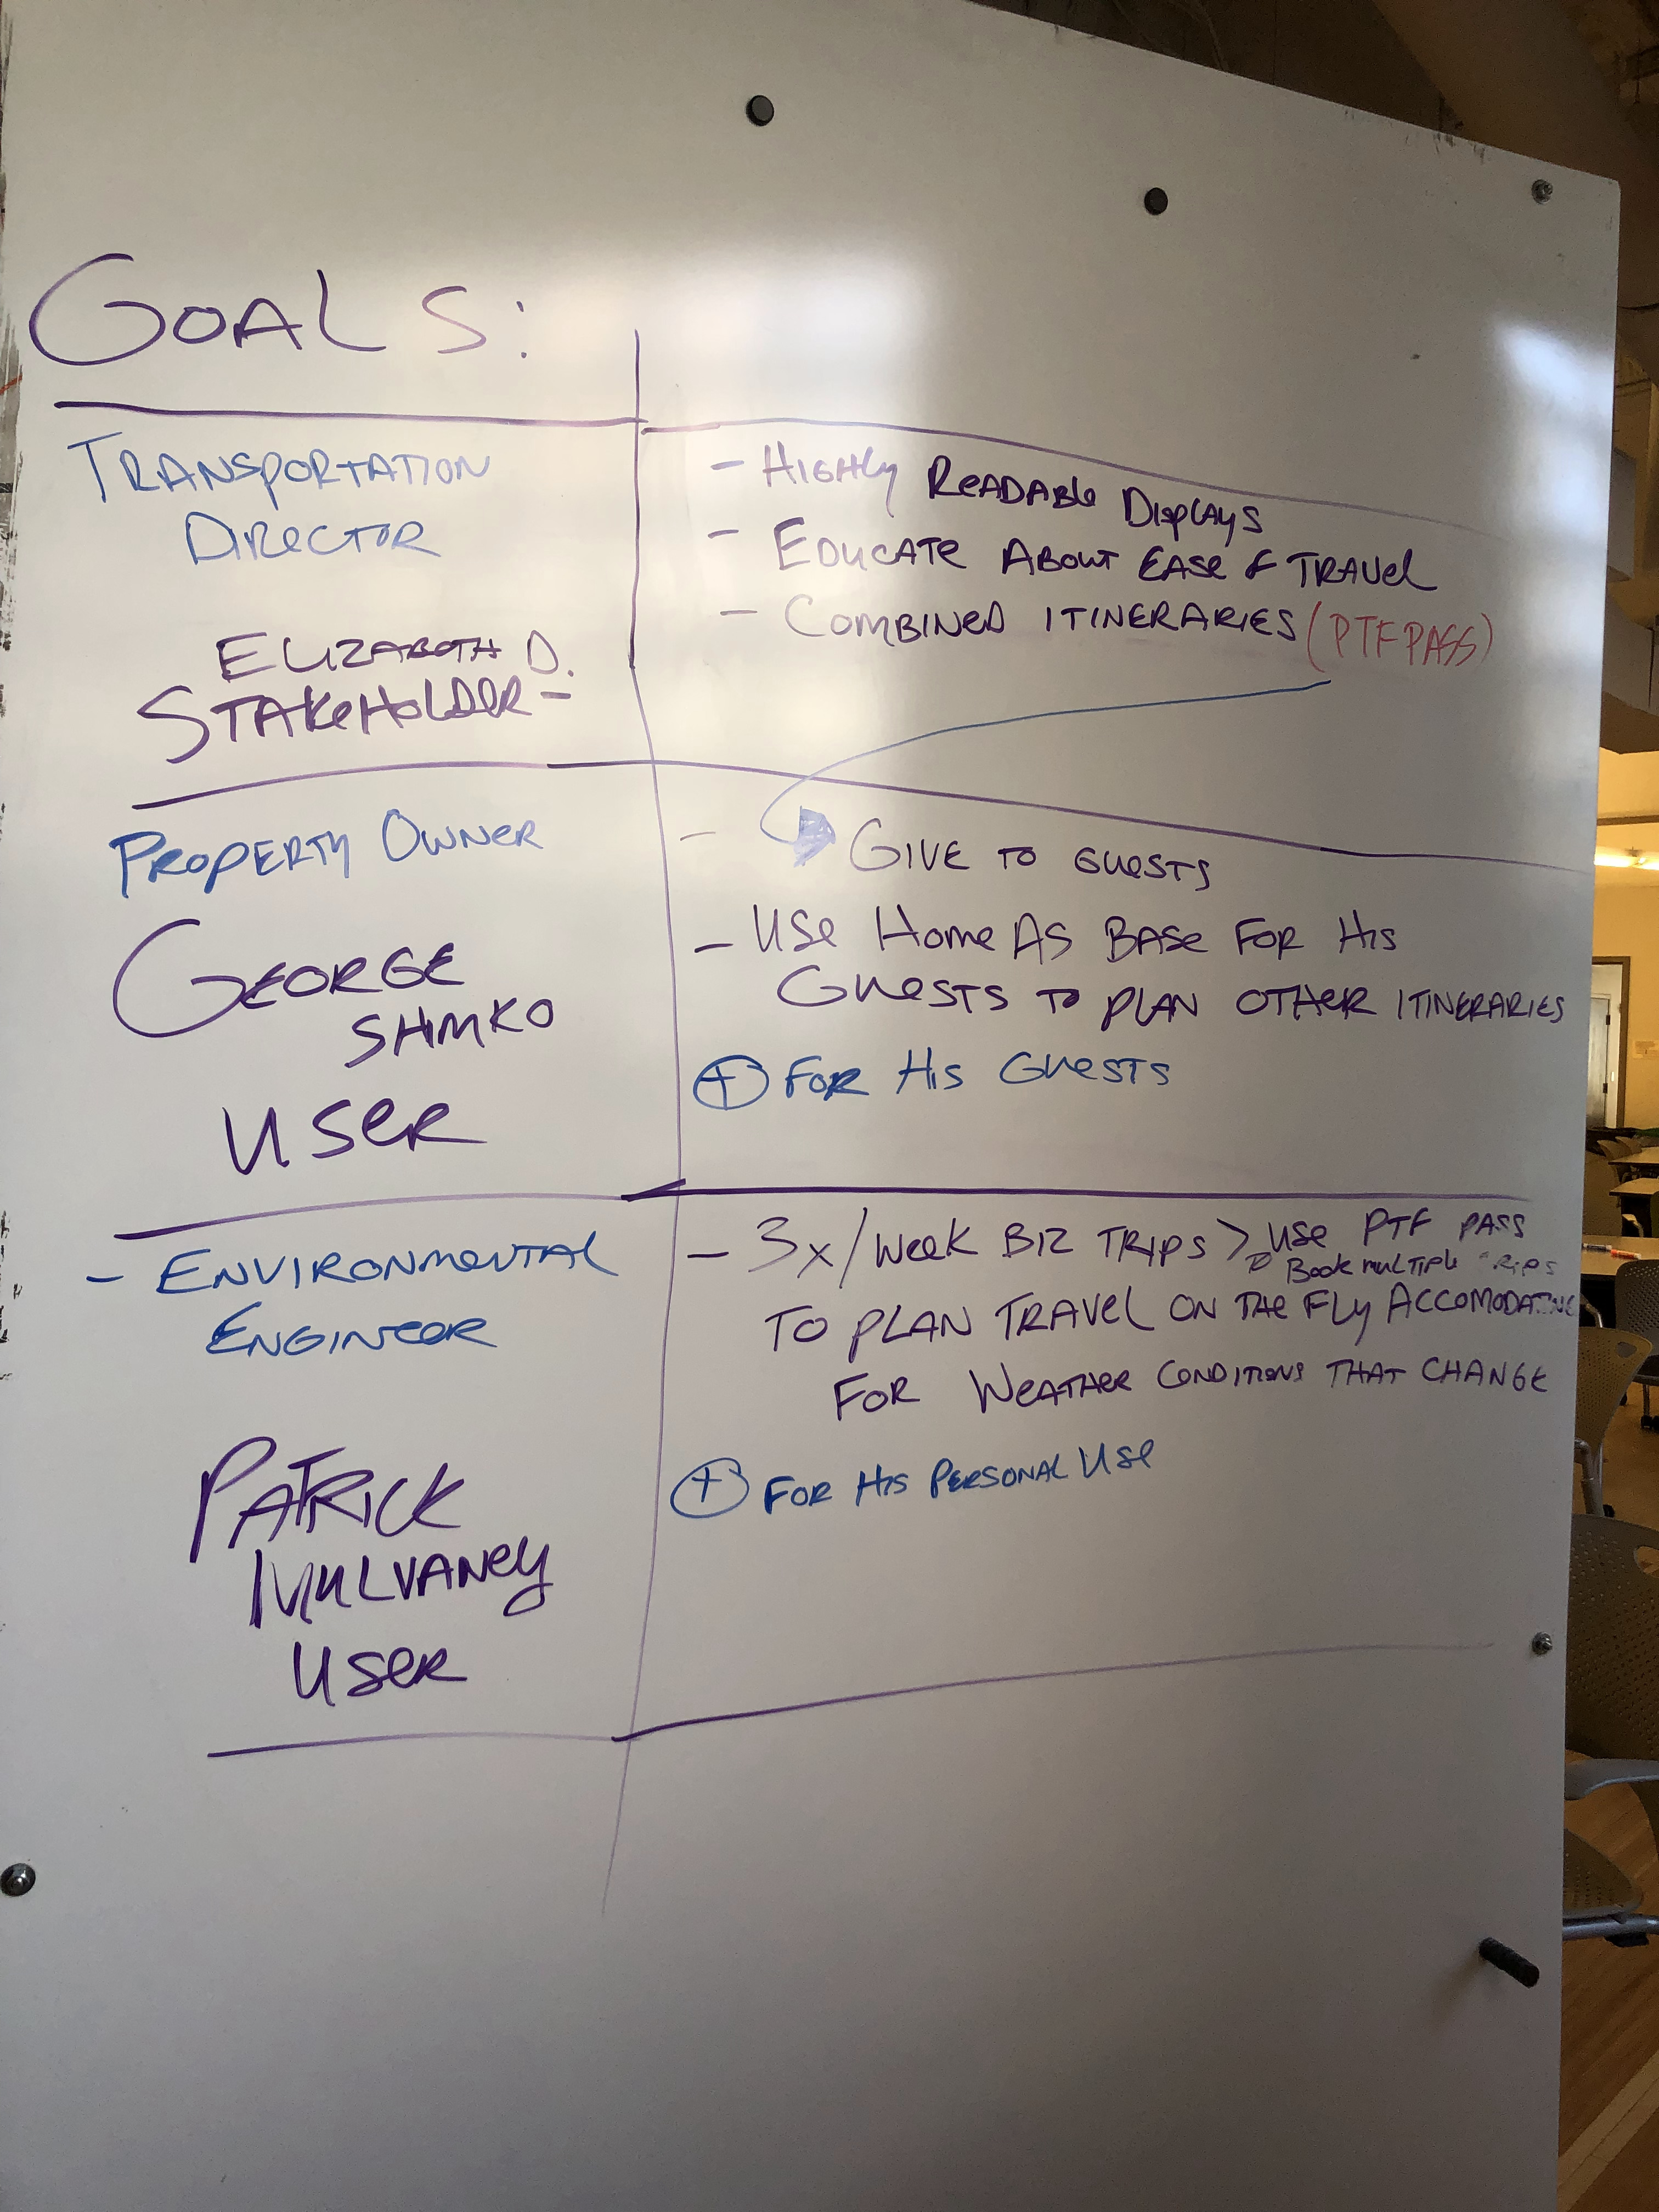 GOALS:
TRANSPORTATION
DIRECTOR
ELIZABETH D.
STAKEHOLDER -
- HIGHLY READABLE DISPLAYS
- EDUCATE ABOUT EASE OF TRAVEL
- COMBINED ITINERARIES (PTF PASS)
PROPERTY OWNER
GEORGE
SHIMKO
USER
- GIVE TO GUESTS
- USE HOME AS BASE FOR HIS
GUESTS TO PLAN OTHER ITINERARIES
+ FOR HIS GUESTS
- ENVIRONMENTAL
ENGINEER
PATRICK
MULVANEY
USER
- 3x/WEEK BIZ TRIPS > USE PTF PASS
BOOK MULTIPLE TRIPS
TO PLAN TRAVEL ON THE FLY ACCOMODATING
FOR WEATHER CONDITIONS THAT CHANGE
+ FOR HIS PERSONAL USE